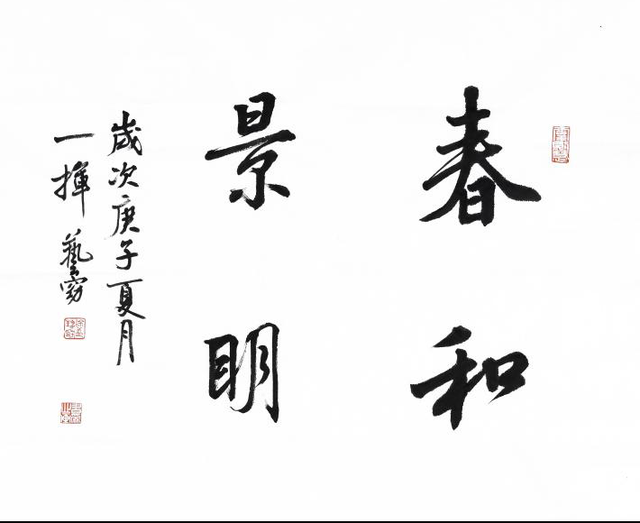 春和
景明
歲次庚子夏月
一揮藝窮